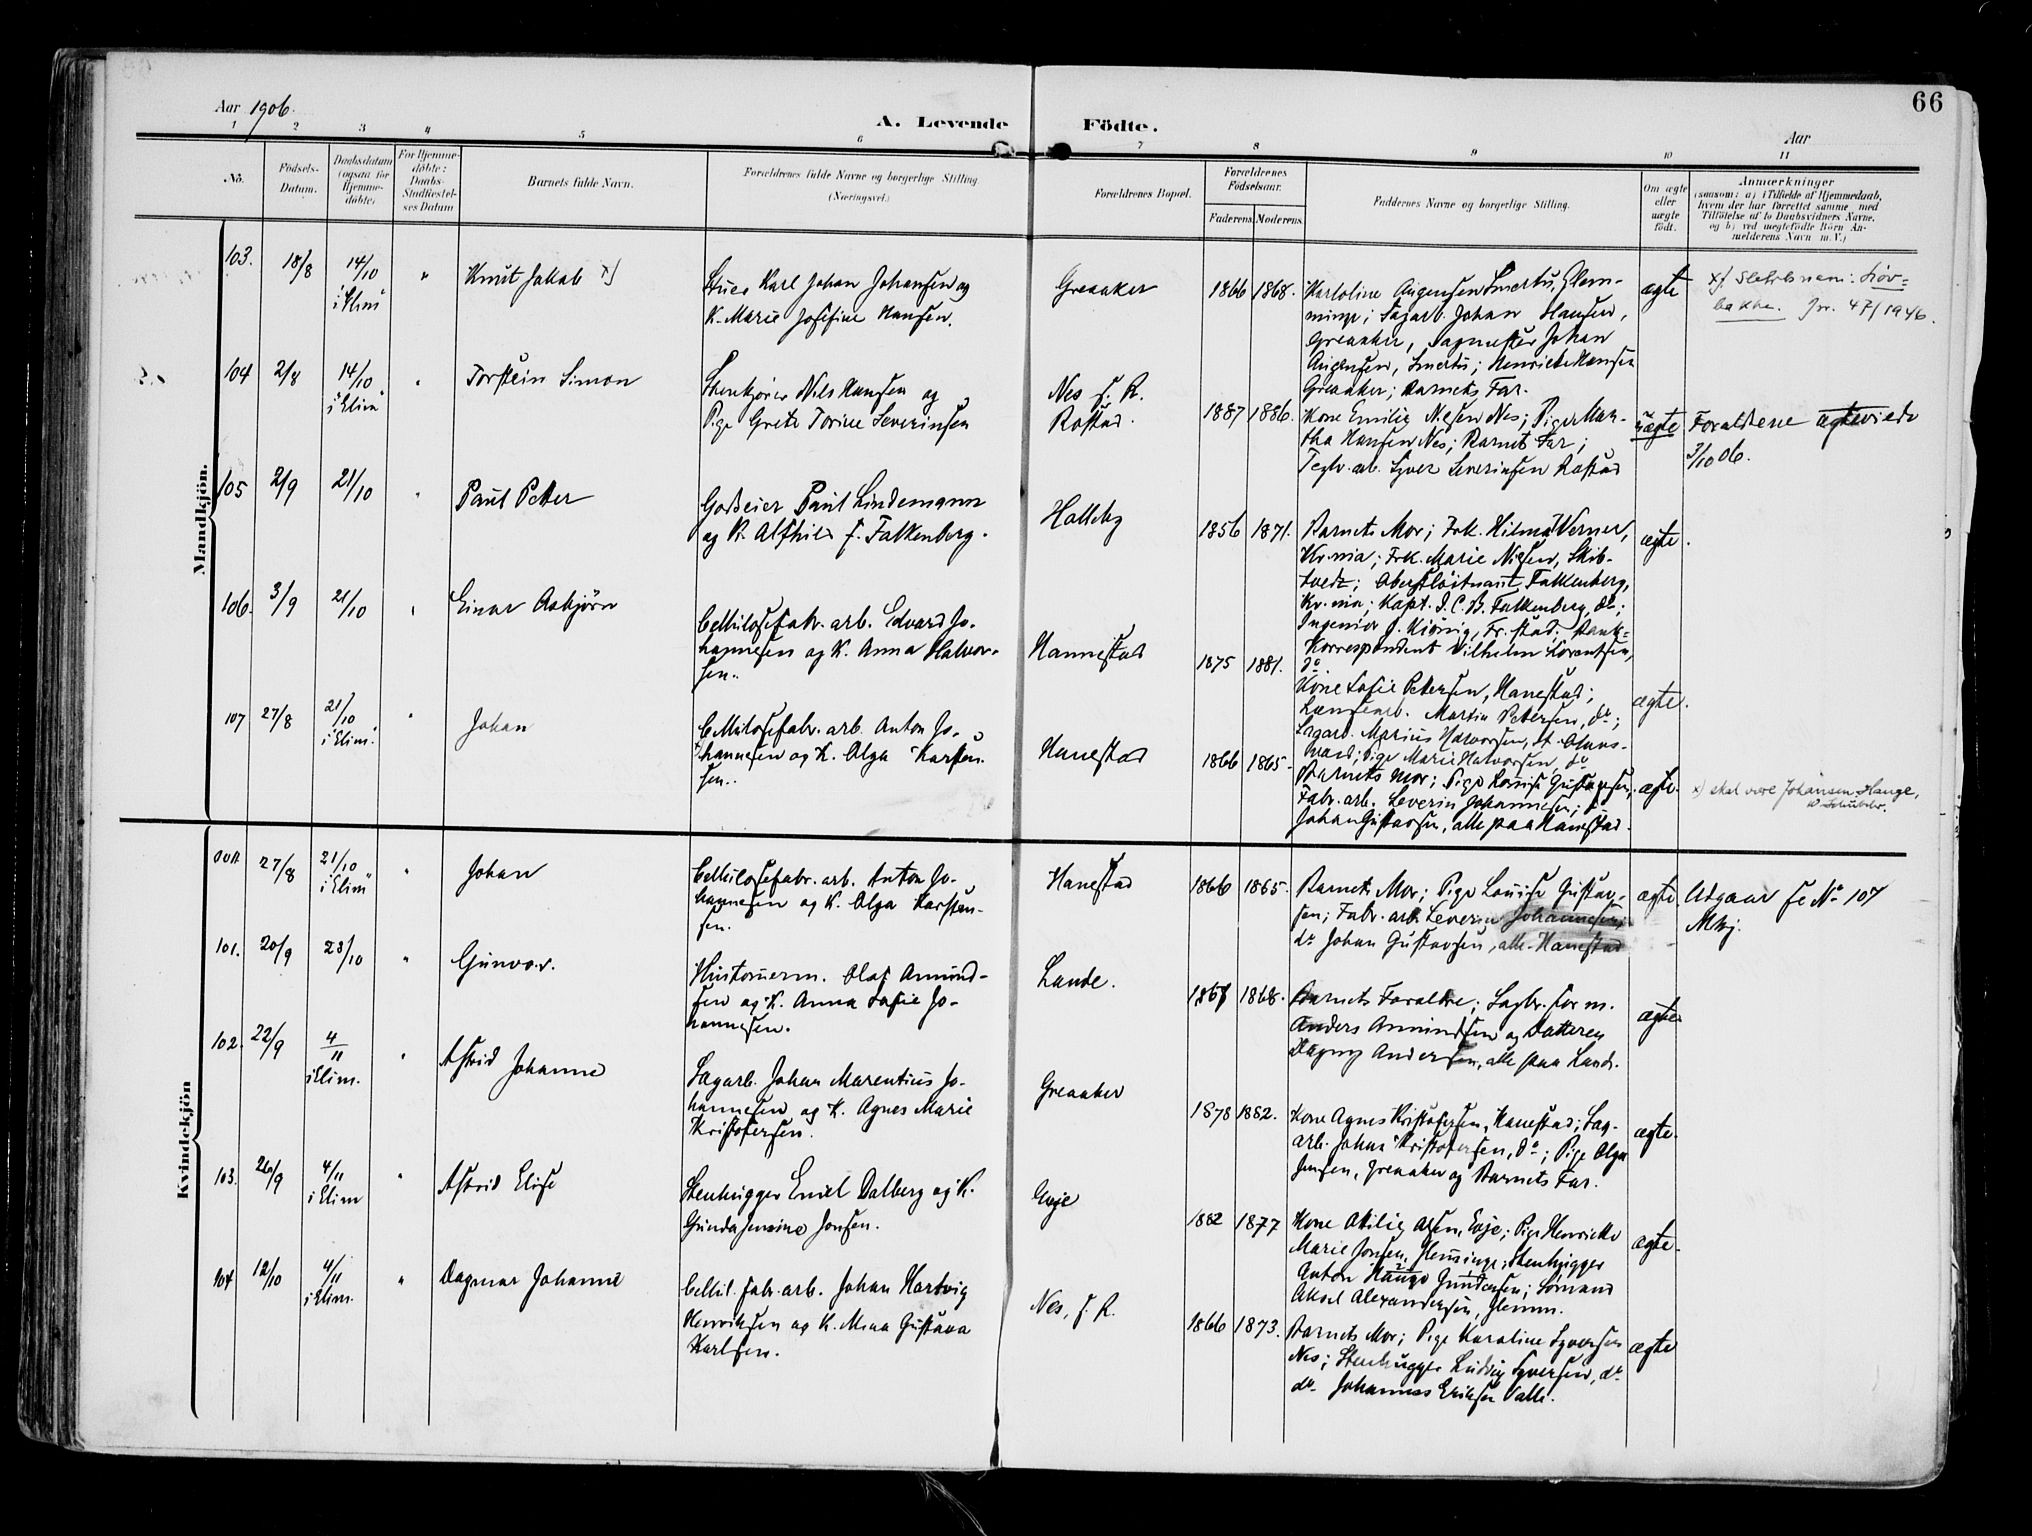 66
Aar 1906.
A. Levende Födte.
Aar
1 2 3 4 5 6 7 8 9 10 11
No.
Födsels-
Datum.
Daabsdatum
(ogsaa for
Hjemme-
döbte)
For Hjemme-
döbte:
Daabs-
Stadfæstel-
ses Datum
Barnets fulde Navn.
Forældrenes fulde Navne og borgerlige Stilling
(Næringsvei.)
Forældrenes Bopæl.
Forældrenes
Födselsaar.
Faderens. Moderens.
Faddernes Navne og borgerlige Stilling.
Om ægte
eller
uægte
födt.
Anmærkninger
(saasom: a) i Tilfælde af Hjemmedaab,
hvem der har forrettet samme, med
Tilföielse af to Daabsvidners Navne,
og b) ved uægtefödte Börn An-
melderens Navn m. V.)
Mandkjön.
103. 18/8 14/10 " Knut Jakob x)
i "Elim"
Karl Johan Johansen og
K. Marie Josefine Hansen.
Greaaker
1866 1868.
minge; Sagarb. Johan Hansen,
Greaaker, Sagmester Johan
Greaaker; Barnets Far.
ægte
x) Slektsnavn: Liøv-
bakke. Jnr. 47/1946.
104 2/8 14/10 " Torstein Simon
i "Elim"
Stenkjører Nils Hansen og
Pige Grete Torine Severinsen
Nes f. R.
Rostad.
1887 1886.
Kone Emilie Nilsen Nes; Pige Mar-
tha Hansen Nes; Barnets Far;
Teglv. arb. Syver Severinsen Rostad
uægte
Forældrene ægteviede
3/10 06.
105 2/9 21/10 " Paul Petter
Godseier Paul Lindemann
og K. Alfhild f. Falkenberg.
Halleby
1856 1871.
Barnets Mor; Frk. Hilma Werner,
Kr.nia; Frk. Marie Nilsen, Skib-
tvedt; Oberstløitnant Falkenberg,
Kr.nia; Kapt. J. C. B. Falkenberg, do;
Ingeniør J. Kiönig, Fr.stad; Bank-
korrespondent Vilhelm Lorentsen,
do
ægte.
106. 3/9 21/10 " Einar Asbjörn
Cellulosefabr. arb. Edvard Jo-
hannesen og K. Anna Halvor-
sen.
Hannestad
1875 1881.
Kone Sofie Pettersen, Hanestad;
Lænsearb. Martin Petersen, do;
Sagarb. Marius Halvorsen, St. Olavs-
Pige Marie Halvorsen, do
ægte.
107 27/8 21/10 " Johan
i "Elim".
Cellulosefabr. arb. Anton Jo-
hannesen og K. Olga Karsten-
sen.
Hanestad
1866 1865.
Barnets Mor; Pige Lovise Gustavsen,
Fabr. arb. Severin Johannesen;
Johan Gustavsen, alle paa Hanestad.
ægte.
x) skal være Johansen Hauge,
Kvindekjön
27/8 21/10 " Johan
i "Elim"
Cellulosefabr. arb. Anton Jo-
hannesen og K. Olga Karsten-
sen.
Hanestad
1866 1865.
Barnets Mor; Pige Louise Gustav-
sen; Fabr. arb. Severin Johannesen;
do Johan Gustavsen, alle Hanestad
ægte.
Udgaar se No 107
Mkj.
101. 20/9 28/10 " Gunvor.
Hustømerm. Olaf Amund-
sen og K. Anna Sofie Jo-
hannesen.
Lande.
1867 1868.
Barnets Forældre; Sagbr. form.
Anders Amundsen og Datteren
Dagny Andersen, alle paa Lande.
ægte
102. 22/9 4/11 " Astrid Johanne
i Elim.
Sagarb. Johan Marentius Jo-
hannesen og K. Agnes Marie
Kristofersen.
Greaaker
1878 1882.
Kone Agnes Kristofersen, Hanestad; Sag-
arb. Johan Kristofersen, do; Pige Olga
Jensen, Greaaker og Barnets Far.
ægte.
103. 26/9 4/11 " Astrid Elise
i Elim
Stenhugger Emil Dalberg og K.
Gunda Jensine Jonsen.
Evje
1882 1877
Kone Otilie Olsen, Evje; Pige Henrikke
Marie Jonsen, Glemminge; Stenhugger
Anton Hauge Gundersen; Sømand
Aksel Alexandersen, Glemm.
ægte.
104 12/10 4/11 " Dagmar Johanne
i Elim.
Cellul. fabr. arb. Johan Hartvig
Henriksen og K. Mina Gustava
Karlsen.
Nes, f. R.
1866 1873.
Barnets Mor; Pige Karoline Syversen
Nes; Stenhugger Ludvig Syversen, do
do Johannes Eriksen Valle.
ægte